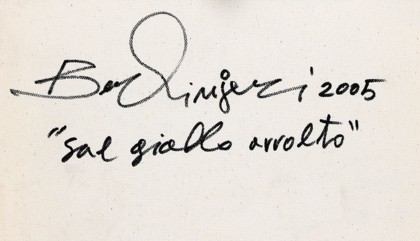 Berlingeri 2005
"sul giallo avvolto"